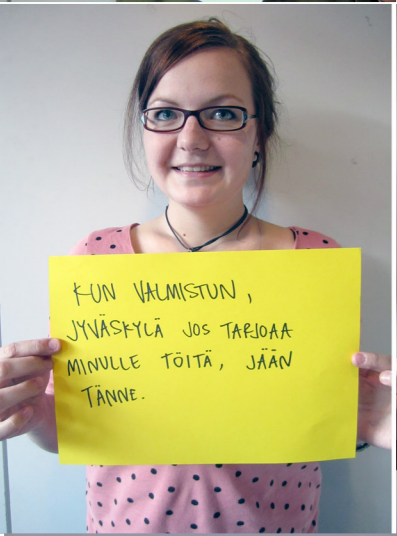 KUN VALMISTUN,
JYVÄSKYLÄ JOS TARJOAA
MINULLE TÖITÄ, JÄÄN
TÄNNE.